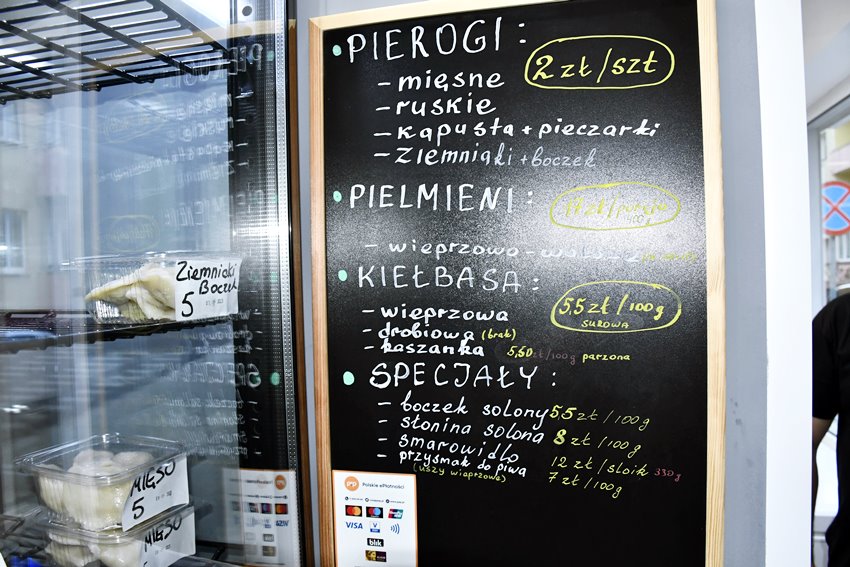 • PIEROGI: 2 zł/szt
- mięsne
- ruskie
- kapusta + pieczarki
- ziemniaki + boczek
• PIELMIENI: zł/porcja
100g
- wieprzowo-
• KIEŁBASA: 5,5 zł/100g
SUROWA
- wieprzowa
- drobiowa (brak)
- kaszanka 5,50 zł/100g parzona
• SPECJAŁY:
- boczek solony 5,5 zł/100g
- słonina solona 8 zł/100g
- smarowidło 12 zł/słoik 330g
- przysmak do piwa 7 zł/100g
(uszy wieprzowe)
Ziemniaki
Boczek
5
MIĘSO
5
MIĘSO
pep Polskie ePłatności
VISA
blik